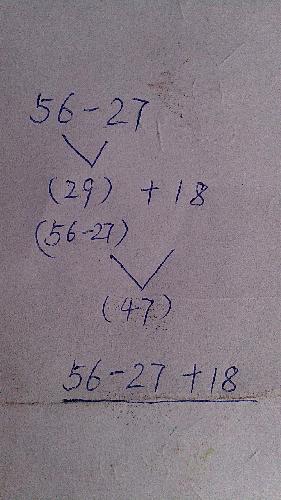 56-27
(29) +18
(56-27)
(47)
56-27+18